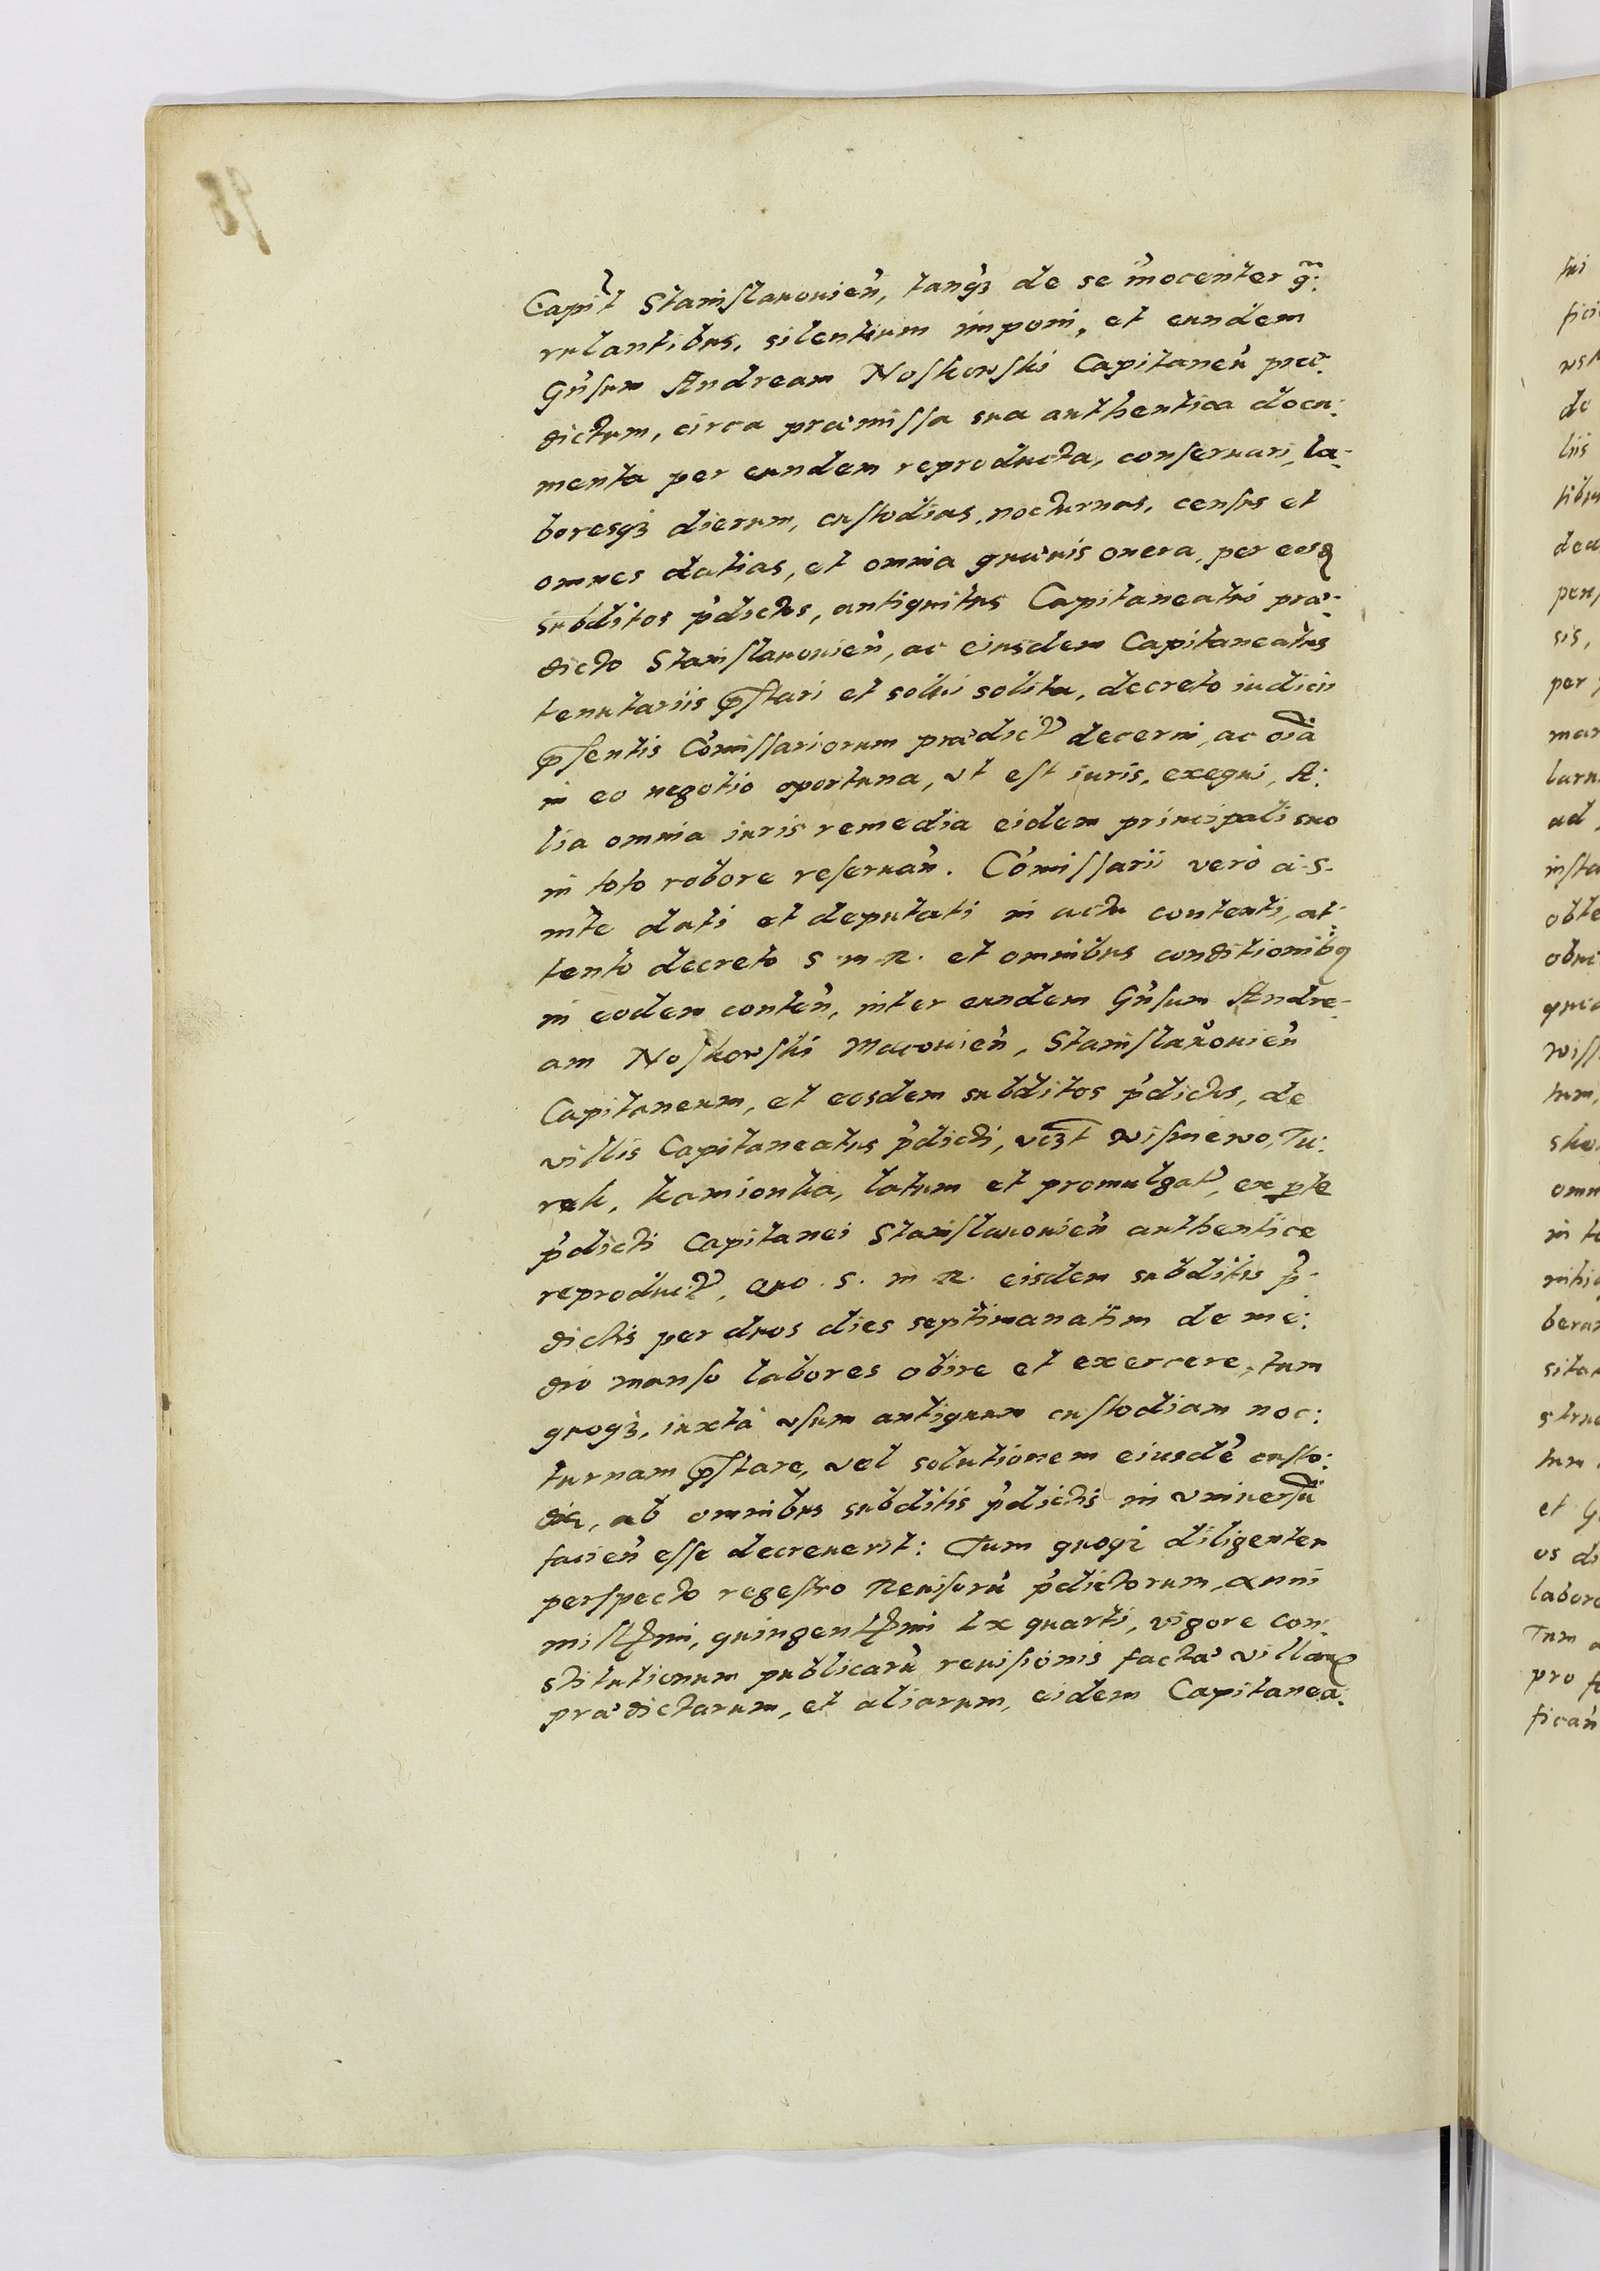 Capit Stanislauouien̄, tanqȝ de se īnocenter q̄:
rulantibus, silentium imponi, et eundem
Gn̄sum Andream Noskowski Capitaneū præ:
dictum, circa præmissa sua authentica docu:
menta per eundem reproducta, conseruari, la-
boresqȝ dierum, custodias nocturnas, census et
omnes datias, et omnia quæuis onera, per eosdē
subditos p̄dictos, antiquitus Capitaneatui præ-
dicto Stanislauouien̄, ac eiusdem Capitaneatus
tenutariis p̄stari et solui solita, decreto iudicii
p̄sentis Cōmissariorum prædict decerni, ac oīa
in eo negotio oportuna, vt est iuris, exequi, A:
lia omnia iuris remedia eidem principali suo
in toto robore reseruan̄. Cōmissarii vero a S.
mte dati et deputati in actu contenti, at-
tento decreto S. M. R. et omnibus conditionibꝫ
in eodem conten̄, inter eundem Gn̄sum Andre-
am Noskowski Macouien̄, Stanislauouien̄
Capitaneum, et eosdem subditos p̄dictos, de
villis Capitaneatus p̄dicti, vczt Wisniewo, Tu:
rek, Kamionka, latum et promulgat, ex pte
p̄dicti Capitanei Stanislauouien̄ authentice
reproduct, Quo S. M. R. eisdem subditis p̄-
dictis per duos dies septimanatim de me:
dio manso labores obire et exercere, tum
quoqȝ, iuxta vsum antiquum custodiam noc:
turnam p̄stare, vel solutionem eiusdē custo:
diæ, ab omnibus subditis p̄dictis in vniuersū
facien̄ esse decreuerit: Tum quoqȝ diligenter
perspecto regestro Reuisorū p̄dictorum, anni
millesimi, quingentesimi Lx quarti, vigore con-
stitutionum publicarū reuisionis factæ villarū
prædictarum, et aliarum, eidem Capitanea-